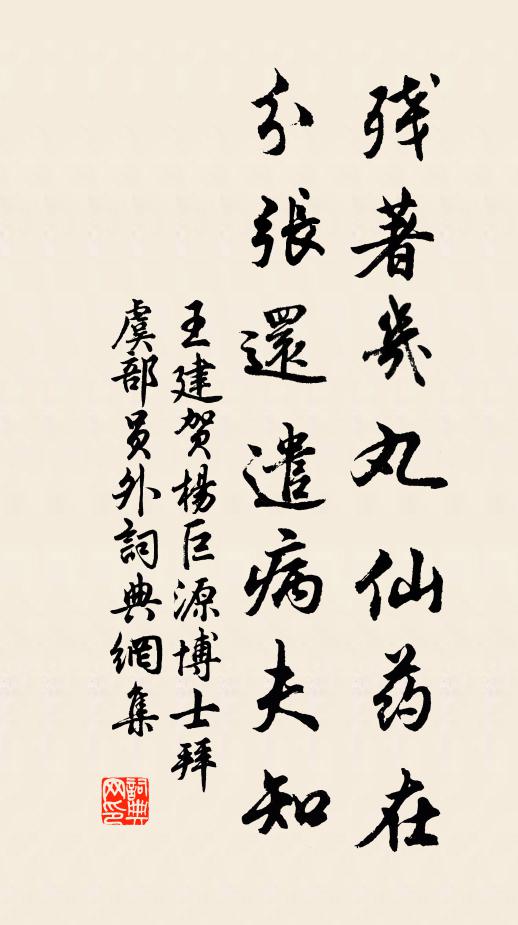 残著幾丸仙药在
分張還遣病夫知
王建贺楊巨源博士拜
虞部員外詞典網集
詞典網印